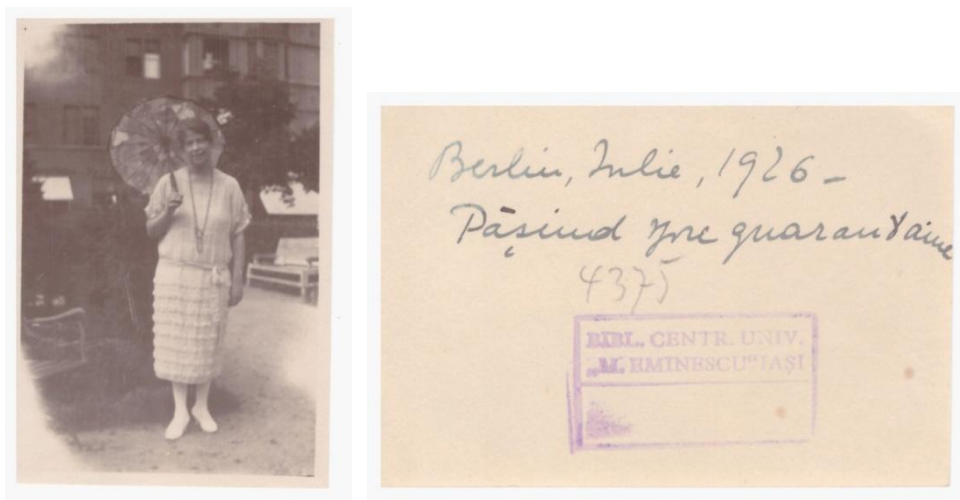 Berlin, Iulie, 1926 –
Pășind spre quarantaine
4375
BIBL. CENTR. UNIV.
„M. EMINESCU" IAȘI